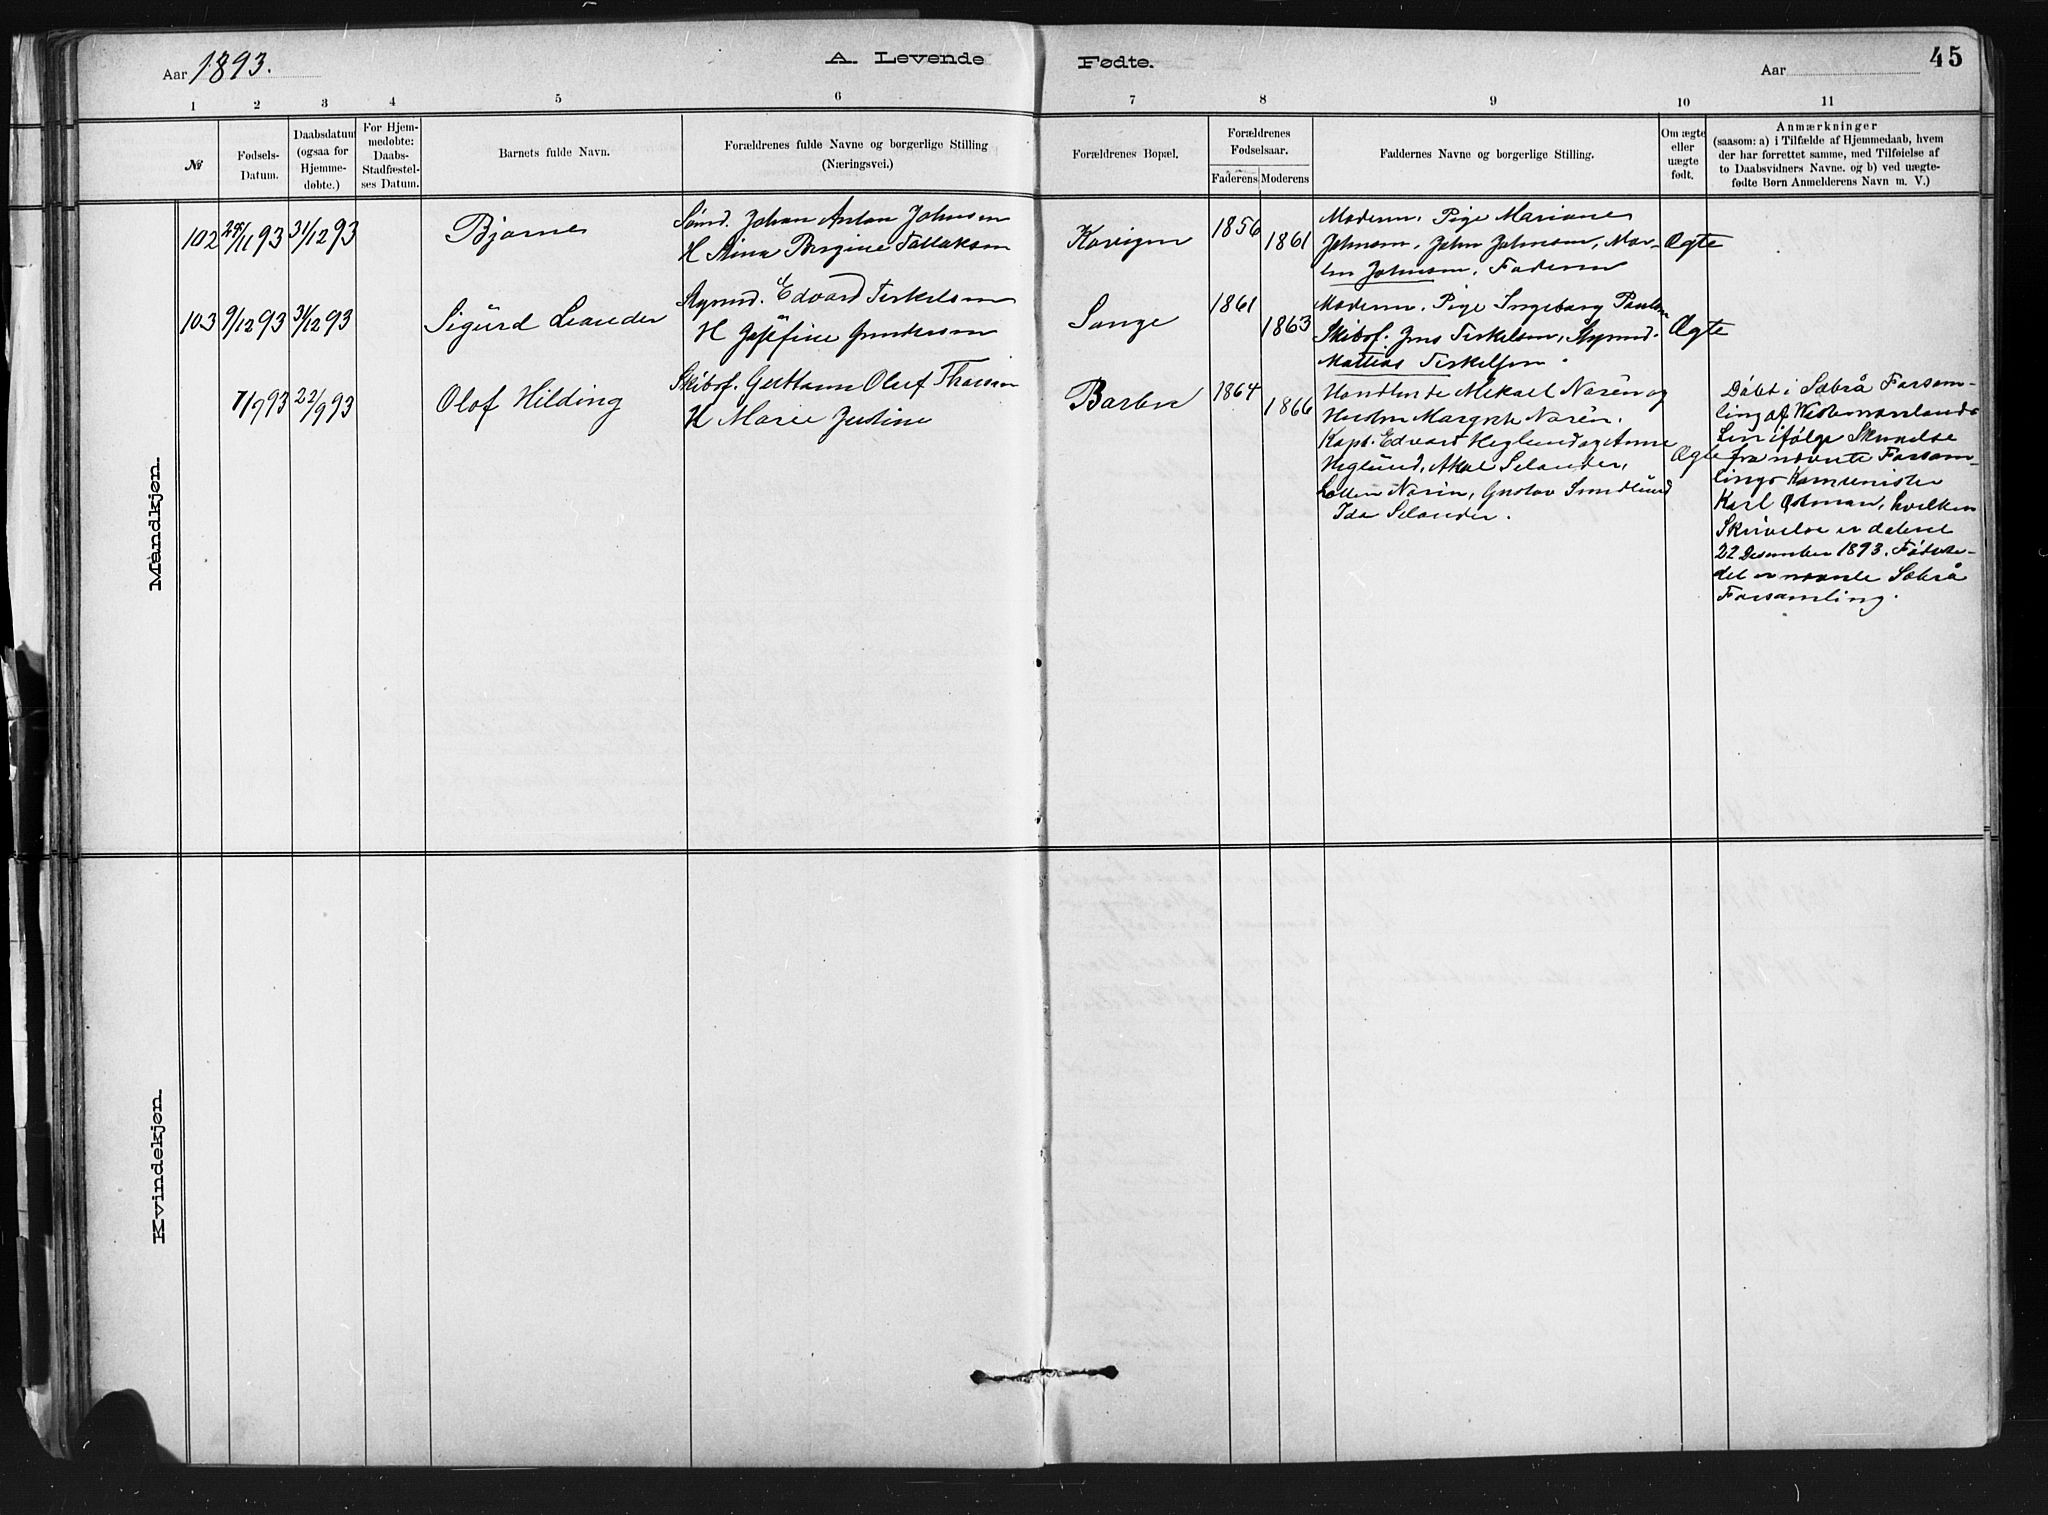 Aar 1893.
A. Levende
Fødte.
Aar
45
1 2 3 4 5 6 7 8 9 10 11
№
Fødsels-
Datum.
Daabsdatum
(ogsaa for
Hjemme-
døbte.)
For Hjem-
medøbte:
Daabs-
Stadfæstel-
ses Datum.
Barnets fulde Navn.
Forældrenes fulde Navne og borgerlige Stilling
(Næringsvei.)
Forældrenes Bopæl.
Forældrenes
Fødselsaar.
Faderens
Moderens
Faddernes Navne og borgerlige Stilling.
Om ægte
eller
uægte
født.
Anmærkninger
(saasom: a) i Tilfælde af Hjemmedaab, hvem
der har forrettet samme, med Tilføielse af
to Daabsvidners Navne. og b) ved uægte-
fødte Børn Anmelderens Navn m. V.)
Mandkjøn.
102 /11 93 31/12 93
Bjarne
Sømd. Johan Anton Johnsen
H Bergine Tallaksen
1856
1861
Moderen. Pige Mariane
Johnsen. John Johnsen, Mar-
Johnsen. Faderen
Ægte
103 9/12 93 31/12 93
Sigurd Leander
Styrmd. Edvard Terkelsen
H Josefine Gundersen
Songe
1861
1863
Moderen. Pige Ingeborg
Skibsf. Jens Terkelsen, Styrmd.
Mattias Terkelsen.
Ægte
7/9 93 22/9 93
Olof Hilding
Skibsf. Oluf
H Marie Justine
Barbu
1864
1866
Handlende Mikael Norén og
Hustru Margrete Norén.
Kapt. Edvard Heglund og Anna
Heglund, Axel Selander,
Norén, Gustav
Ida Selander.
Ægte
Døbt i Sabrå Forsam-
ling af Westernorrlands
Len ifølge Skrivelse
fra nævnte Forsam-
lings Komminister
Karl Østman, hvilken
Skrivelse er dateret
22 Desember 1893. Fødeste-
det er nævnte Sabrå
Forsamling.
Kvindekjøn.